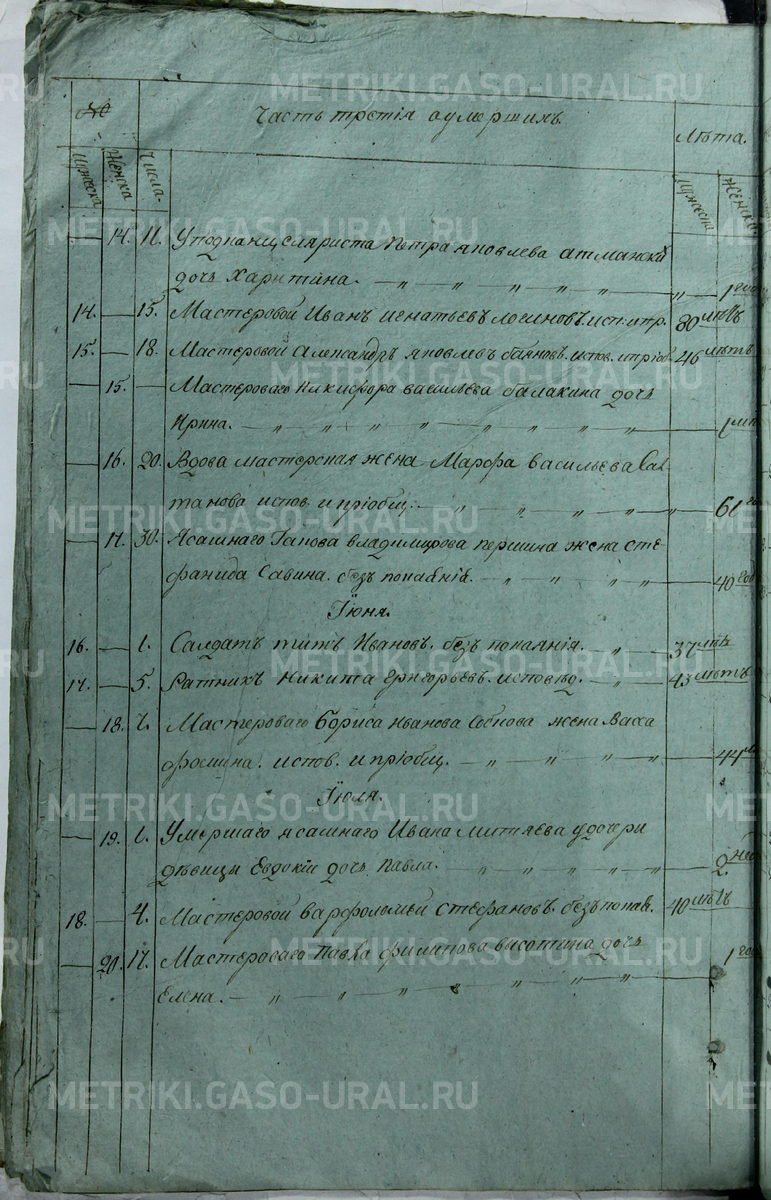 №
Часть третія оумершихъ
Лѣта.
Мужеска Женска Числа Мужеска Женска
14. 11. Уподканцеляриста Петра яковлева атманскай
дочь Харитина. 1 годъ
14. 15. Мастеровой Иванъ игнатьевъ логиновъ. исп. ипр. 80 лѣтъ
15. 18. Мастеровой Александръ яковлевъ баяновъ. испов. ипріоб. 46 лѣтъ
15. Мастероваго никифора васильева балакина дочь
Ирина. 1 лѣт
16. 20. Вдова мастерская жена Марфа васильева Сал
танова испов. и пріобщ. 61 го
17. 30. Ясашнаго владимірова першина жена сте
фанида Савина. безъ покаянія. 40 год
Іюня.
16. 1. Салдатъ титъ Ивановъ. безъ покаянія. 37 лѣт
17. 5. Ратникъ Никита григорьевъ. исповед. 43 лѣтъ
18. 7. Мастероваго Бориса иванова жена Васса
фомина. испов. и пріобщ. 44
Іюля.
19. 1. Умершаго ясашнаго Ивана митяева удочери
дѣвицы Евдокіи дочь Павла. 2. нед
18. 4. Мастеровой варфоломей стефановъ. безъ покая. 40 лѣтъ
20. 17. Мастероваго Павла филипова висотина дочь 1 год
Елена.
METRIKI.GASO-URAL.RU